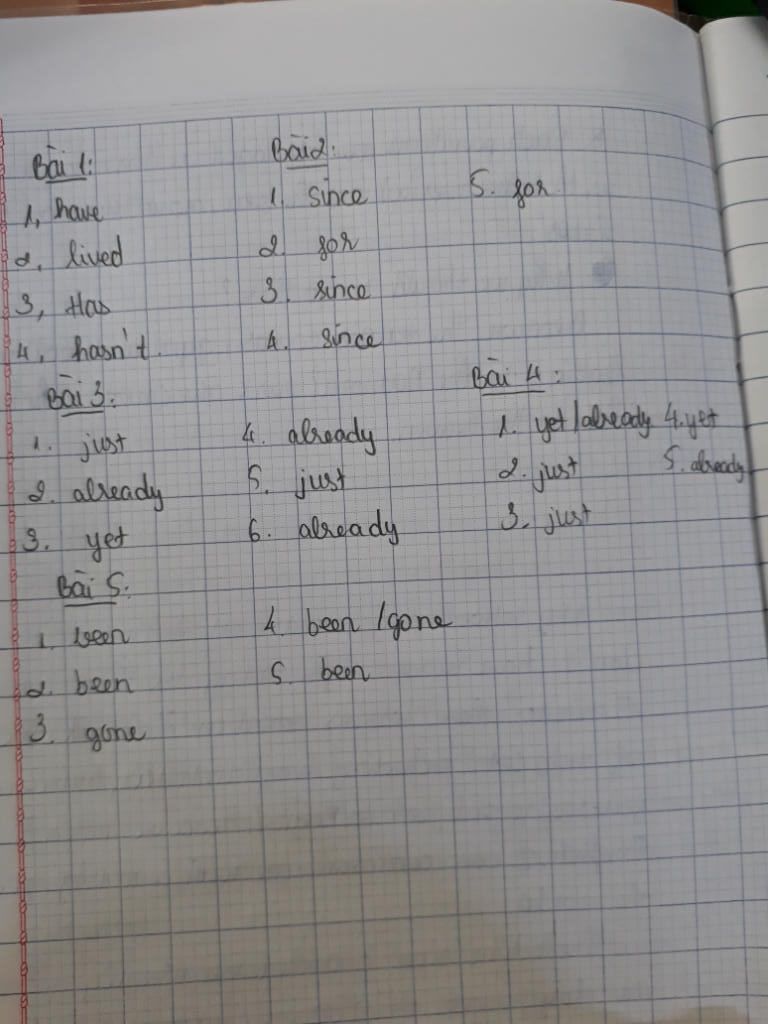 Bài 1:
1, have
2, lived
3, Has
4, hasn't.
Bài 2:
1 since
2. for
3 since
4. since
5. for
Bài 3:
1. just
2. already
3. yet
4. already
5. just
6. already
Bài 4:
1. yet/already 4. yet
2. just 5. already
3. just
Bài 5:
1. been
2. been
3. gone
4. been /gone
5. been